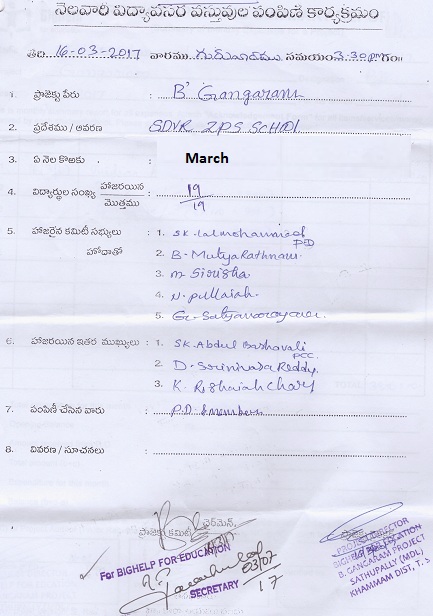 నెలవారీ విద్యావసర వస్తువుల పంపిణీ కార్యక్రమం
తేది 16-03-2017 వారము గురువారము సమయం 3.30pm గం॥
1. ప్రాజెక్టు పేరు : B' Gangaram
2. ప్రదేశము / ఆవరణ : SDVR ZPS SCHOOL
3. ఏ నెల కొఱకు : March
4. విద్యార్థుల సంఖ్య హాజరయిన / మొత్తము : 19 / 19
5. హాజరైన కమిటీ సభ్యులు : 1. SK. lalmohammad PD
హోదాతో 2. B. MutyaRathnam
3. M Sirisha
4. N. pullaiah.
5. G. Satyanarayana
6. హాజరయిన ఇతర ముఖ్యులు : 1. SK. Abdul Bashavali PCC.
2. D. Srinivasa Reddy.
3. K. Rghaiah Chary
7. పంపిణీ చేసిన వారు : P.D &members
8. వివరణ / సూచనలు :
ప్రాజెక్టు కమిటీ ఛైర్మెన్
For BIGHELP FOR EDUCATION
03/07
SECRETARY 17
PROJECT DIRECTOR
BIGHELP FOR EDUCATION
B. GANGARAM PROJECT
SATHUPALLY (MDL)
KHAMMAM DIST, T.S